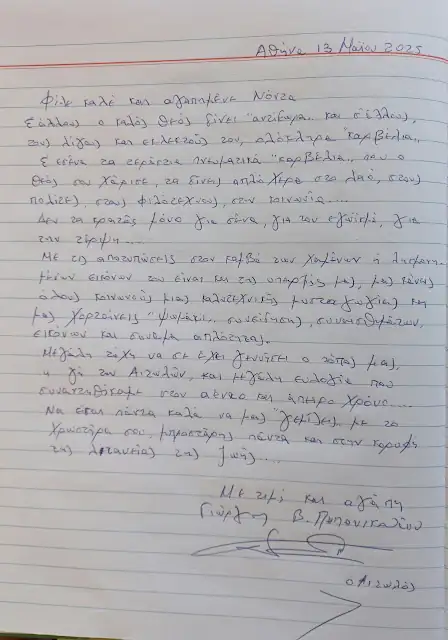 Αθήνα 13 Μαΐου 2025
Φίλε καλέ και αγαπημένε Νόντα
Σ' άλλους ο καλός Θεός δίνει "αντίδωρα" και σ' άλλους,
τους λίγους και εκλεκτούς του, ολόκληρα "καρβέλια"..
Σ' εσένα τα τεράστια πνευματικά "καρβέλια", που ο
Θεός σου χάρισε, τα δίνεις απλόχερα στο λαό, στους
πολίτες, στους φιλότεχνους, στην κοινωνία....
Δεν τα κρατάς μόνο για σένα, για τον εγωισμό, για
την τέρψη....
Με τις αποτυπώσεις στον καμβά των χαμένων ή λησμονη-
μένων εικόνων του είναι και της ύπαρξής μας, μας κάνεις
όλους κοινωνούς μιας καλλιτεχνικής μυσταγωγίας και
μας χορταίνεις "ψωμάκι" συνείδησης, συναισθημάτων,
εικόνων και συνάμα απλότητας.
Μεγάλη τύχη να σε έχει γεννήσει ο τόπος μας,
η γη των Αιτωλών, και μεγάλη ευλογία που
συναντηθήκαμε στον αέναο και άπειρο χρόνο....
Να είσαι πάντα καλά να μας "γεμίζεις" με το
χρωστήρα σου, μπροστάρης πάντα και στην κορυφή
της λιτανείας της ζωής....
Με τιμή και αγάπη
Γιώργης Β. Παπανικολάου
ο Αιτωλός